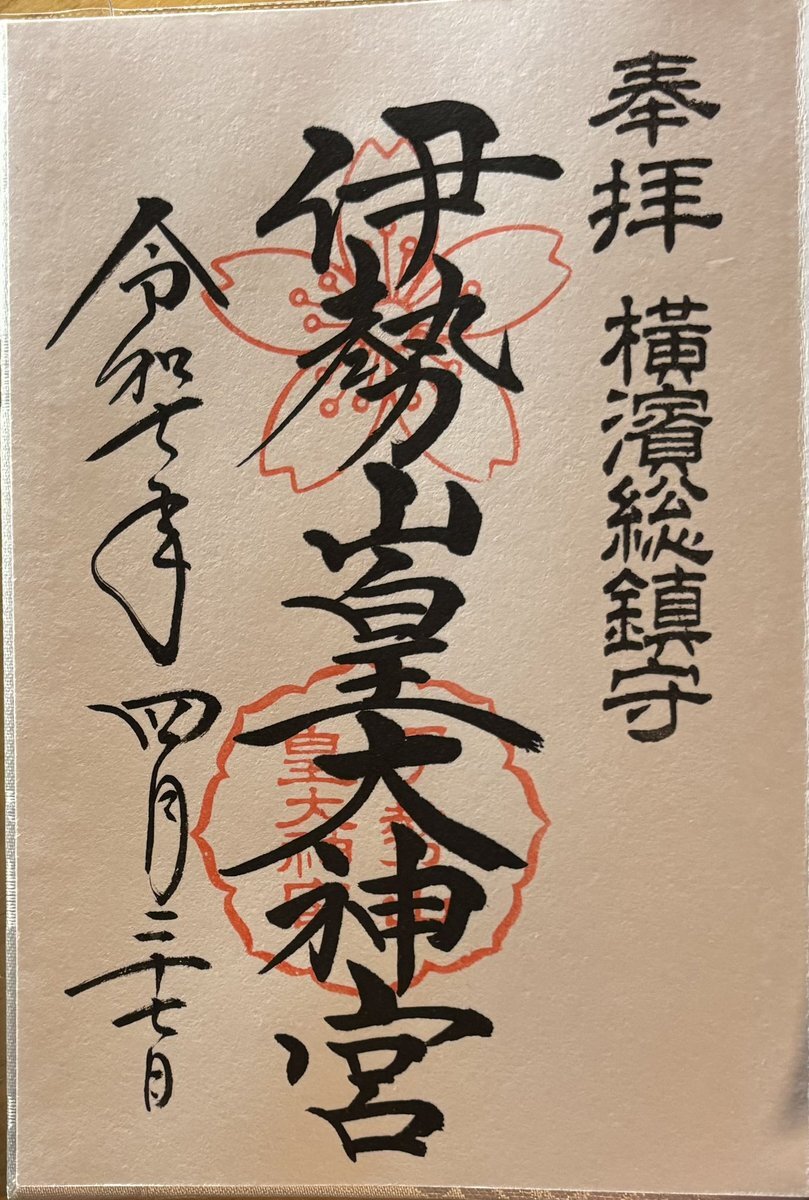 奉拝 横濱総鎮守
伊勢山皇大神宮
伊勢山
皇大神宮
令和七年 四月二十七日